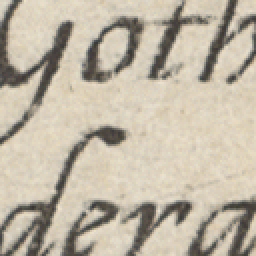 Goth
dera